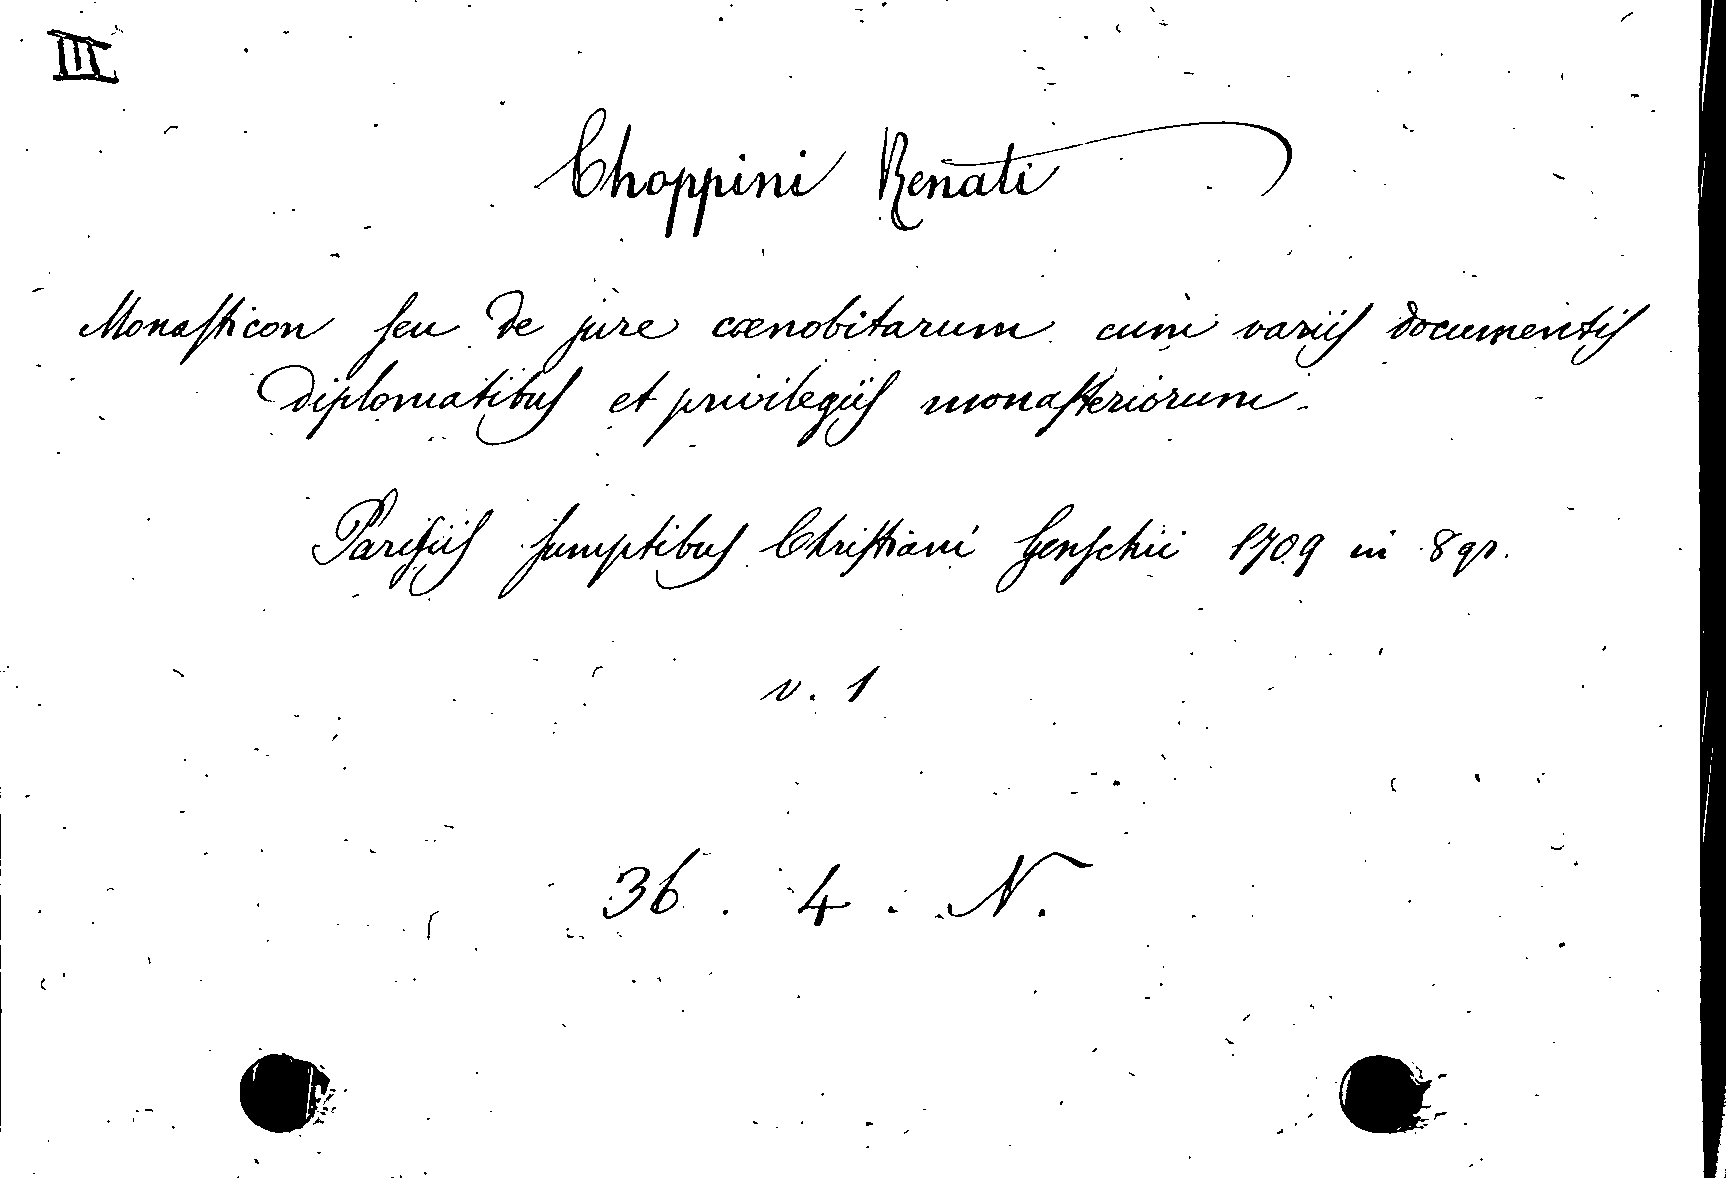 III
Choppini Renati
Monasticon seu de jure cœnobitarum cum variis documentis
diplomatibus et privilegiis monasteriorum.
Parisiis sumptibus Christiani Genschii 1709 in 8 gr.
v. 1
36. 4. N.